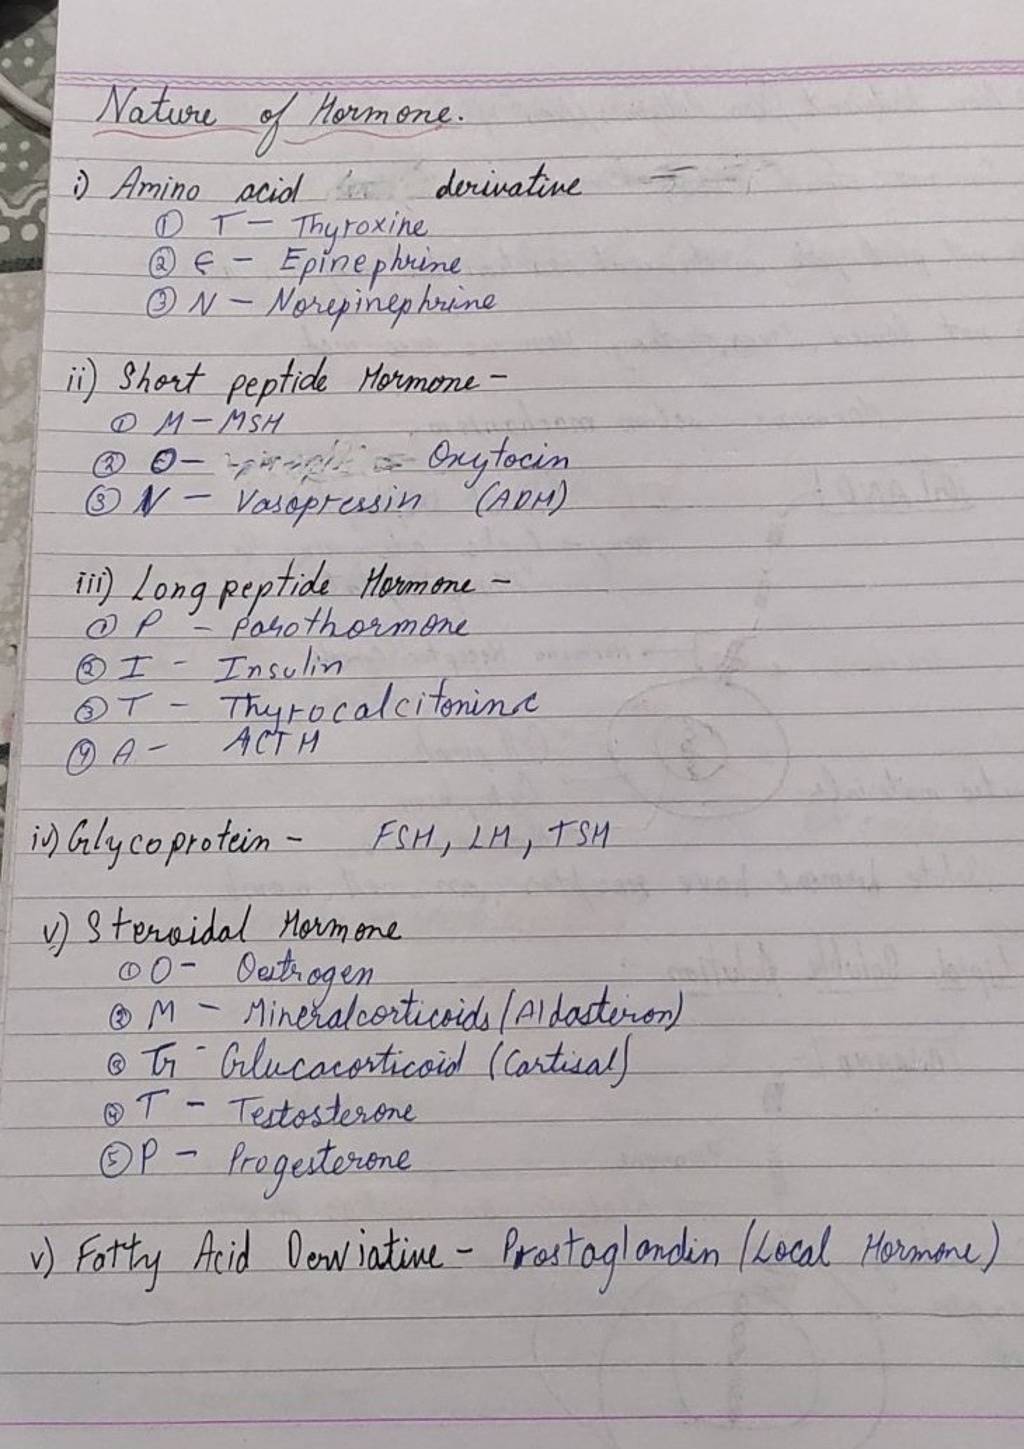 Nature of Hormone.
i) Amino acid derivative
① T - Thyroxine
② E - Epinephrine
③ N - Norepinephrine
ii) Short peptide Hormone -
① M - MSH
② O - Oxytocin
③ V - Vasopressin (ADH)
iii) Long peptide Hormone -
① P - Parothormone
② I - Insulin
③ T - Thyrocalcitonine
④ A - ACTH
iv) Glycoprotein - FSH, LH, TSH
v) Steroidal Hormone
① O - Oestrogen
② M - Mineralcorticoids (Aldosteron)
③ G - Glucacorticoid (Cortisal)
④ T - Testosterone
⑤ P - Progesterone
v) Fatty Acid Derviative - Prostaglandin (Local Hormone)